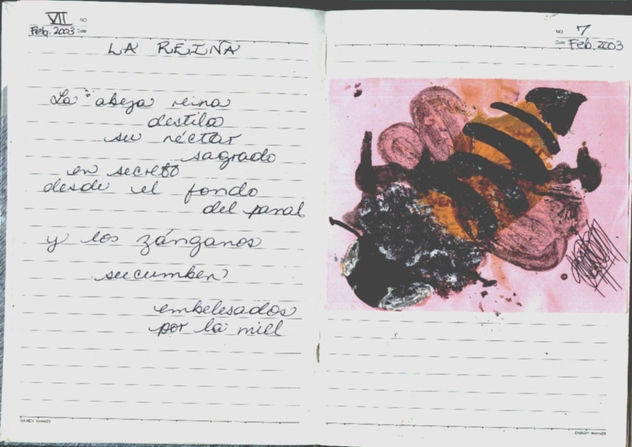 VII
NO
Feb. 2003 Date
LA REINA
La abeja reina
destila
su néctar
sagrado
en secreto
desde el fondo
del panal
y los zánganos
sucumben
embelesados
por la miel
NO 7
Date Feb. 2003